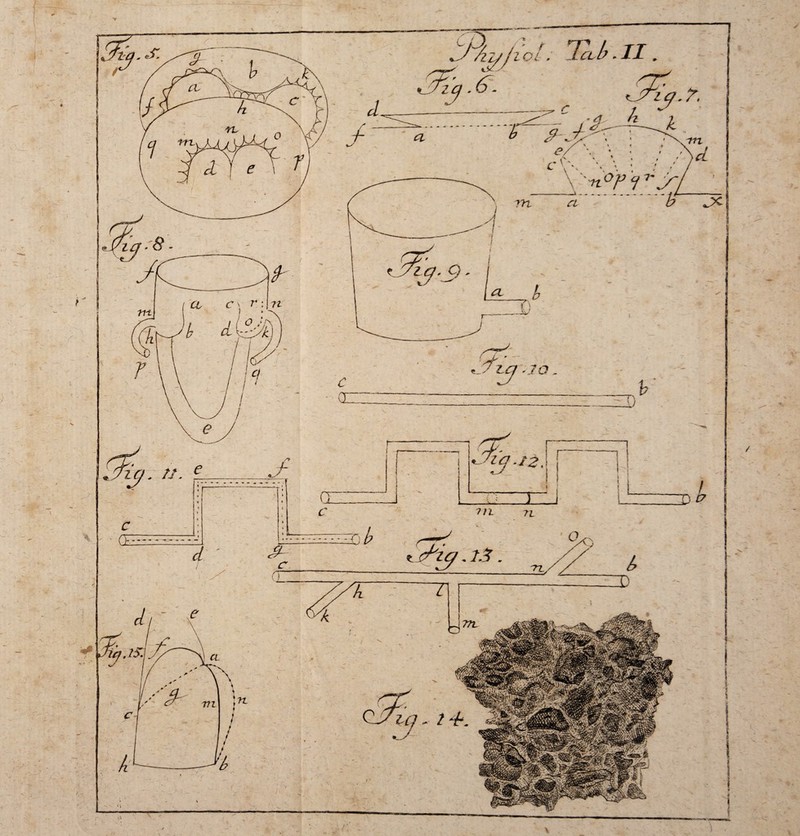 Physiol. Tab. II.
Fig. 5.
g
b
k
a
c
f
h
n
m
o
q
p
d
e
Fig. 6.
d
c
f
a
b
g
Fig. 7.
h
g
k
f
m
e
d
c
n o p q r s
m
a
b
x
Fig. 8.
f
g
a
c
r
n
m
h
b
d
o
k
p
q
e
Fig. 9.
a
b
Fig. 10.
c
b
Fig. 11.
e
f
c
b
d
g
Fig. 12.
c
m
n
b
Fig. 13.
c
o
n
b
h
l
k
m
Fig. 15.
d
e
f
a
g
m
n
c
h
b
Fig. 14.